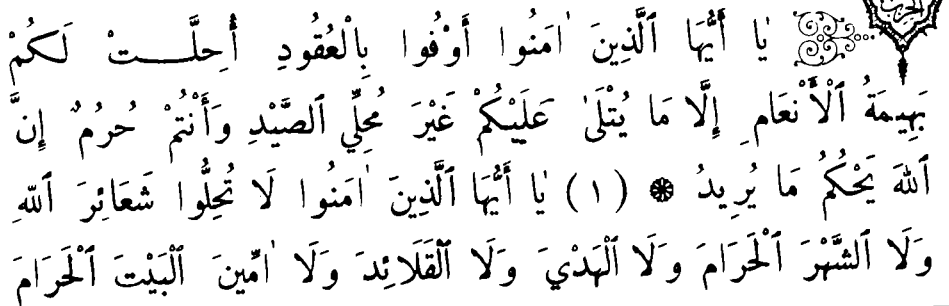 يَا أَيُّهَا ٱلَّذِينَ ءَامَنُوا أَوْفُوا بِٱلْعُقُودِ أُحِلَّـــتْ لَكُمْ
بَهِيمَةُ ٱلْأَنْعَامِ إِلَّا مَا يُتْلَىٰ عَلَيْكُمْ غَيْرَ مُحِلِّي ٱلصَّيْدِ وَأَنْتُمْ حُرُمٌ إِنَّ
ٱللّٰهَ يَحْكُمُ مَا يُرِيدُ ❁ (١) يَا أَيُّهَا ٱلَّذِينَ ءَامَنُوا لَا تُحِلُّوا شَعَائِرَ ٱللّٰهِ
وَلَا ٱلشَّهْرَ ٱلْحَرَامَ وَلَا ٱلْهَدْيَ وَلَا ٱلْقَلَائِدَ وَلَا ءَامِّينَ ٱلْبَيْتَ ٱلْحَرَامَ